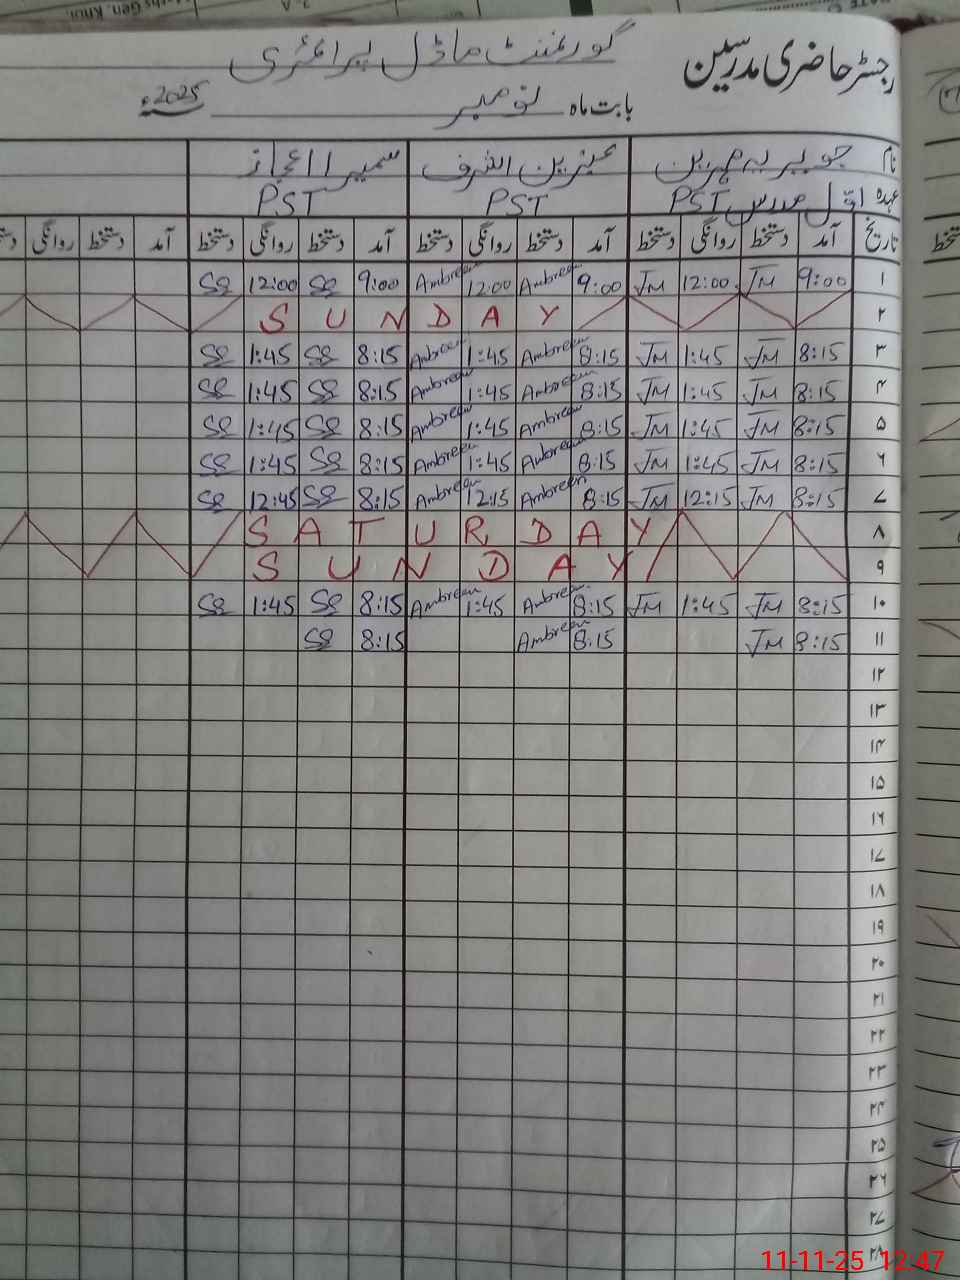 رجسٹر حاضری مدرسین گورنمنٹ ماڈل پرائمری
بابت ماہ نومبر 2025ء
نام جویریہ مہرین عنبرین اشرف سمیرا اعجاز
عہدہ اوّل مدرس PST PST PST
تاریخ آمد دستخط روانگی دستخط آمد دستخط روانگی دستخط آمد دستخط روانگی دستخط آمد دستخط روانگی
۱ 9:00 JM 12:00 JM 9:00 Ambreen 12:00 Ambreen 9:00 SS 12:00 SS
۲ SUNDAY
۳ 8:15 JM 1:45 JM 8:15 Ambreen 1:45 Ambreen 8:15 SS 1:45 SS
۴ 8:15 JM 1:45 JM 8:15 Ambreen 1:45 Ambreen 8:15 SS 1:45 SS
۵ 8:15 JM 1:45 JM 8:15 Ambreen 1:45 Ambreen 8:15 SS 1:45 SS
۶ 8:15 JM 1:45 JM 8:15 Ambreen 1:45 Ambreen 8:15 SS 1:45 SS
۷ 8:15 JM 12:15 JM 8:15 Ambreen 12:15 Ambreen 8:15 SS 12:45 SS
۸ SATURDAY
۹ SUNDAY
۱۰ 8:15 JM 1:45 JM 8:15 Ambreen 1:45 Ambreen 8:15 SS 1:45 SS
۱۱ 8:15 JM 8:15 Ambreen 8:15 SS
۱۲
۱۳
۱۴
۱۵
۱۶
۱۷
۱۸
۱۹
۲۰
۲۱
۲۲
۲۳
۲۴
۲۵
۲۶
۲۷
۲۸
11-11-25 12:47